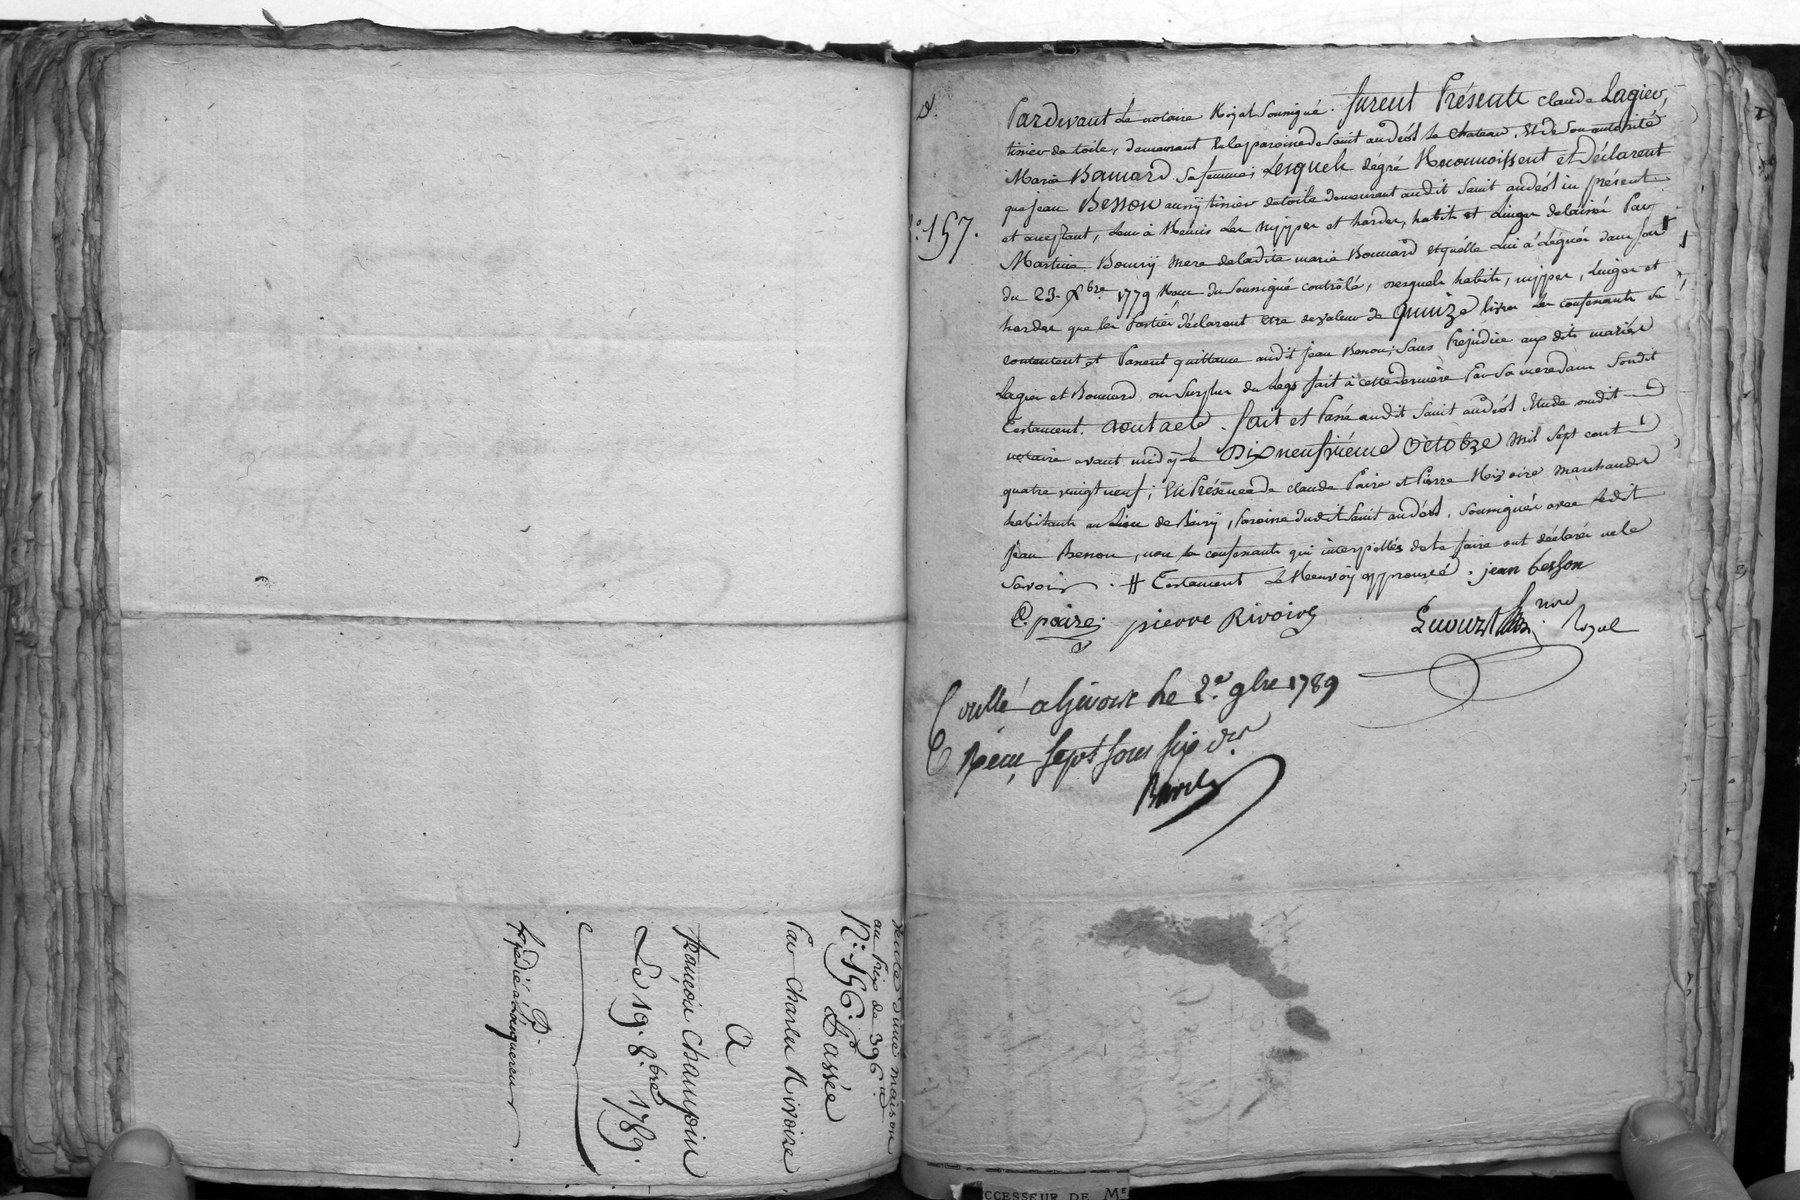 Vente d'une maison
au prix de 396#
N.° 156. Passée
Par Charles Rivoire
A
françois Champin
Le 19. 8.bre 1789.
Expédié a l'acquereur
N.° 157.
Pardevant Le notaire Royal Soussigné. furent Présents Claude Lagier,
tissier de toile, demeurant en la paroisse de Saint andéol le Chateau, et de Son autorité
Marie Bonnard Sa femme; Lesquels dégré Reconnoissent et Déclarent
que jean Besson aussy tissier de toile demeurant audit Saint andéol ici présent
et acceptant, leur à Remis Les nippes et hardes, habits et Linges delaissés Par
Mastina mere de ladite marie Bonnard et qu'elle Lui à Légués dans Son #
du 23. Xbre 1779 Reçu du Soussigné contrôlé, desquels habits, nippes, Linges et
hardes que les Parties déclarent être de valeur de Quinze livres Les confessants Se
contentent et Passent quittance audit jean Besson; Sans Préjudice aux dits mariés
Lagier et Bonnard du Surplus du Legs fait à cette derniere Par Sa mere dans Sondit
Testament. dont acte. fait et Passé audit Saint andéol Etude dudit
notaire avant midy Le Dix neufvième Octobre mil sept cent
quatre vingt neuf; En Présence de Claude Paire et Pierre Rivoire marchands
habitants au Lieu de , Paroisse dudit Saint andéol. Soussignés avec ledit
jean Besson, non les confessants qui interpellés de le faire ont déclaré ne le
Savoir. # Testament Le Renvoy approuvé. jean besson
C paire. pierre Rivoire
nre Royal
Cnllé a Givors Le 2.e 9bre 1789
Reçu Sept Sous Six drs
SUCCESSEUR DE Me